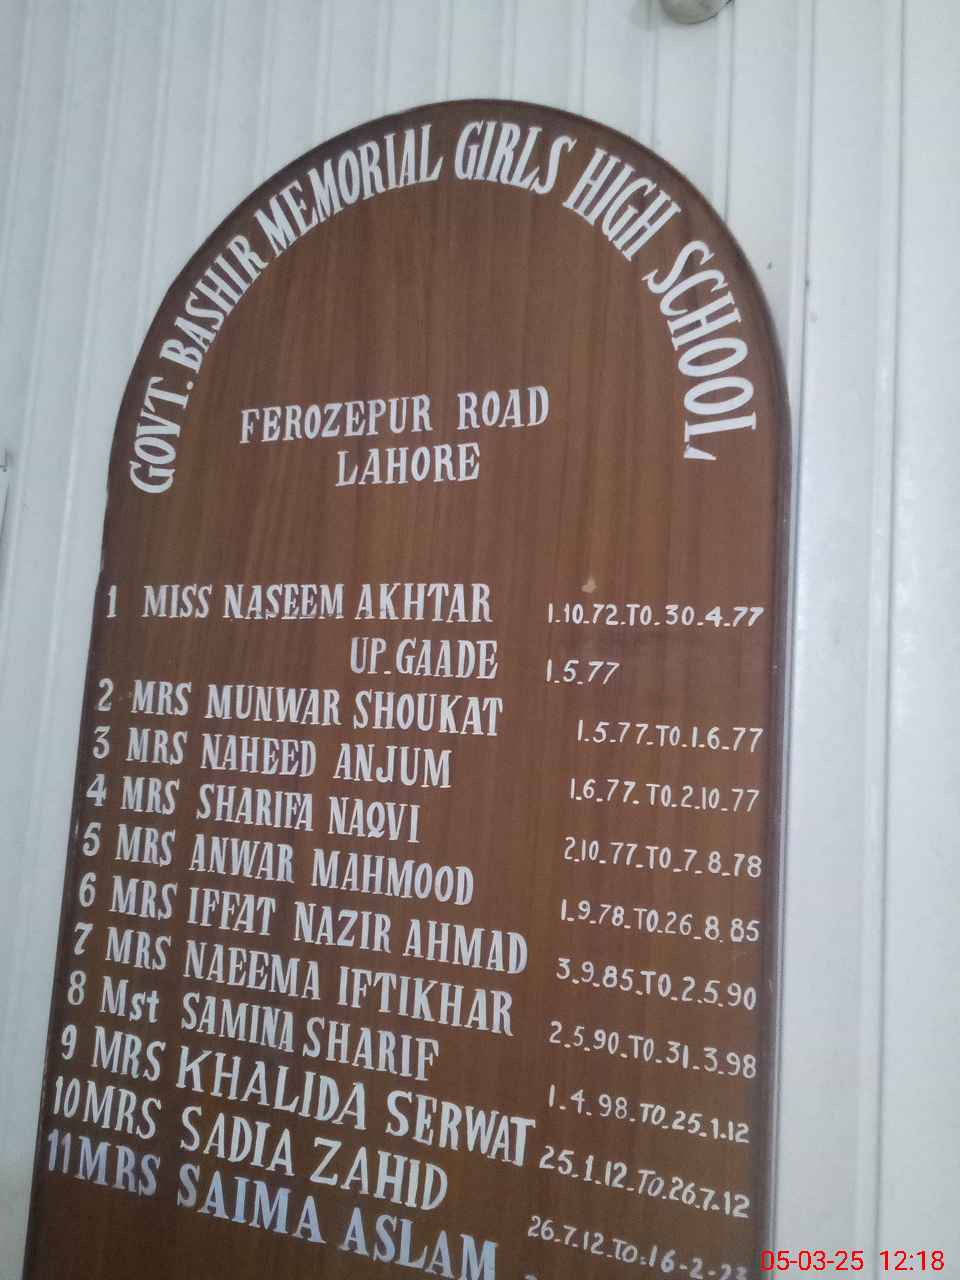 GOVT. BASHIR MEMORIAL GIRLS HIGH SCHOOL
FEROZEPUR ROAD
LAHORE
1 MISS NASEEM AKHTAR 1_10_72_TO_30_4_77
UP_GAADE 1_5_77
2 MRS MUNWAR SHOUKAT 1_5_77_TO_1_6_77
3 MRS NAHEED ANJUM 1_6_77_TO_2_10_77
4 MRS SHARIFA NAQVI 2_10_77_TO_7_8_78
5 MRS ANWAR MAHMOOD 1_9_78_TO_26_8_85
6 MRS IFFAT NAZIR AHMAD 3_9_85_TO_2_5_90
7 MRS NAEEMA IFTIKHAR 2_5_90_TO_31_3_98
8 Mst SAMINA SHARIF 1_4_98_TO_25_1_12
9 MRS KHALIDA SERWAT 25_1_12_TO_26_7_12
10 MRS SADIA ZAHID 26_7_12_TO_16-2-23
11 MRS SAIMA ASLAM
05-03-25 12:18